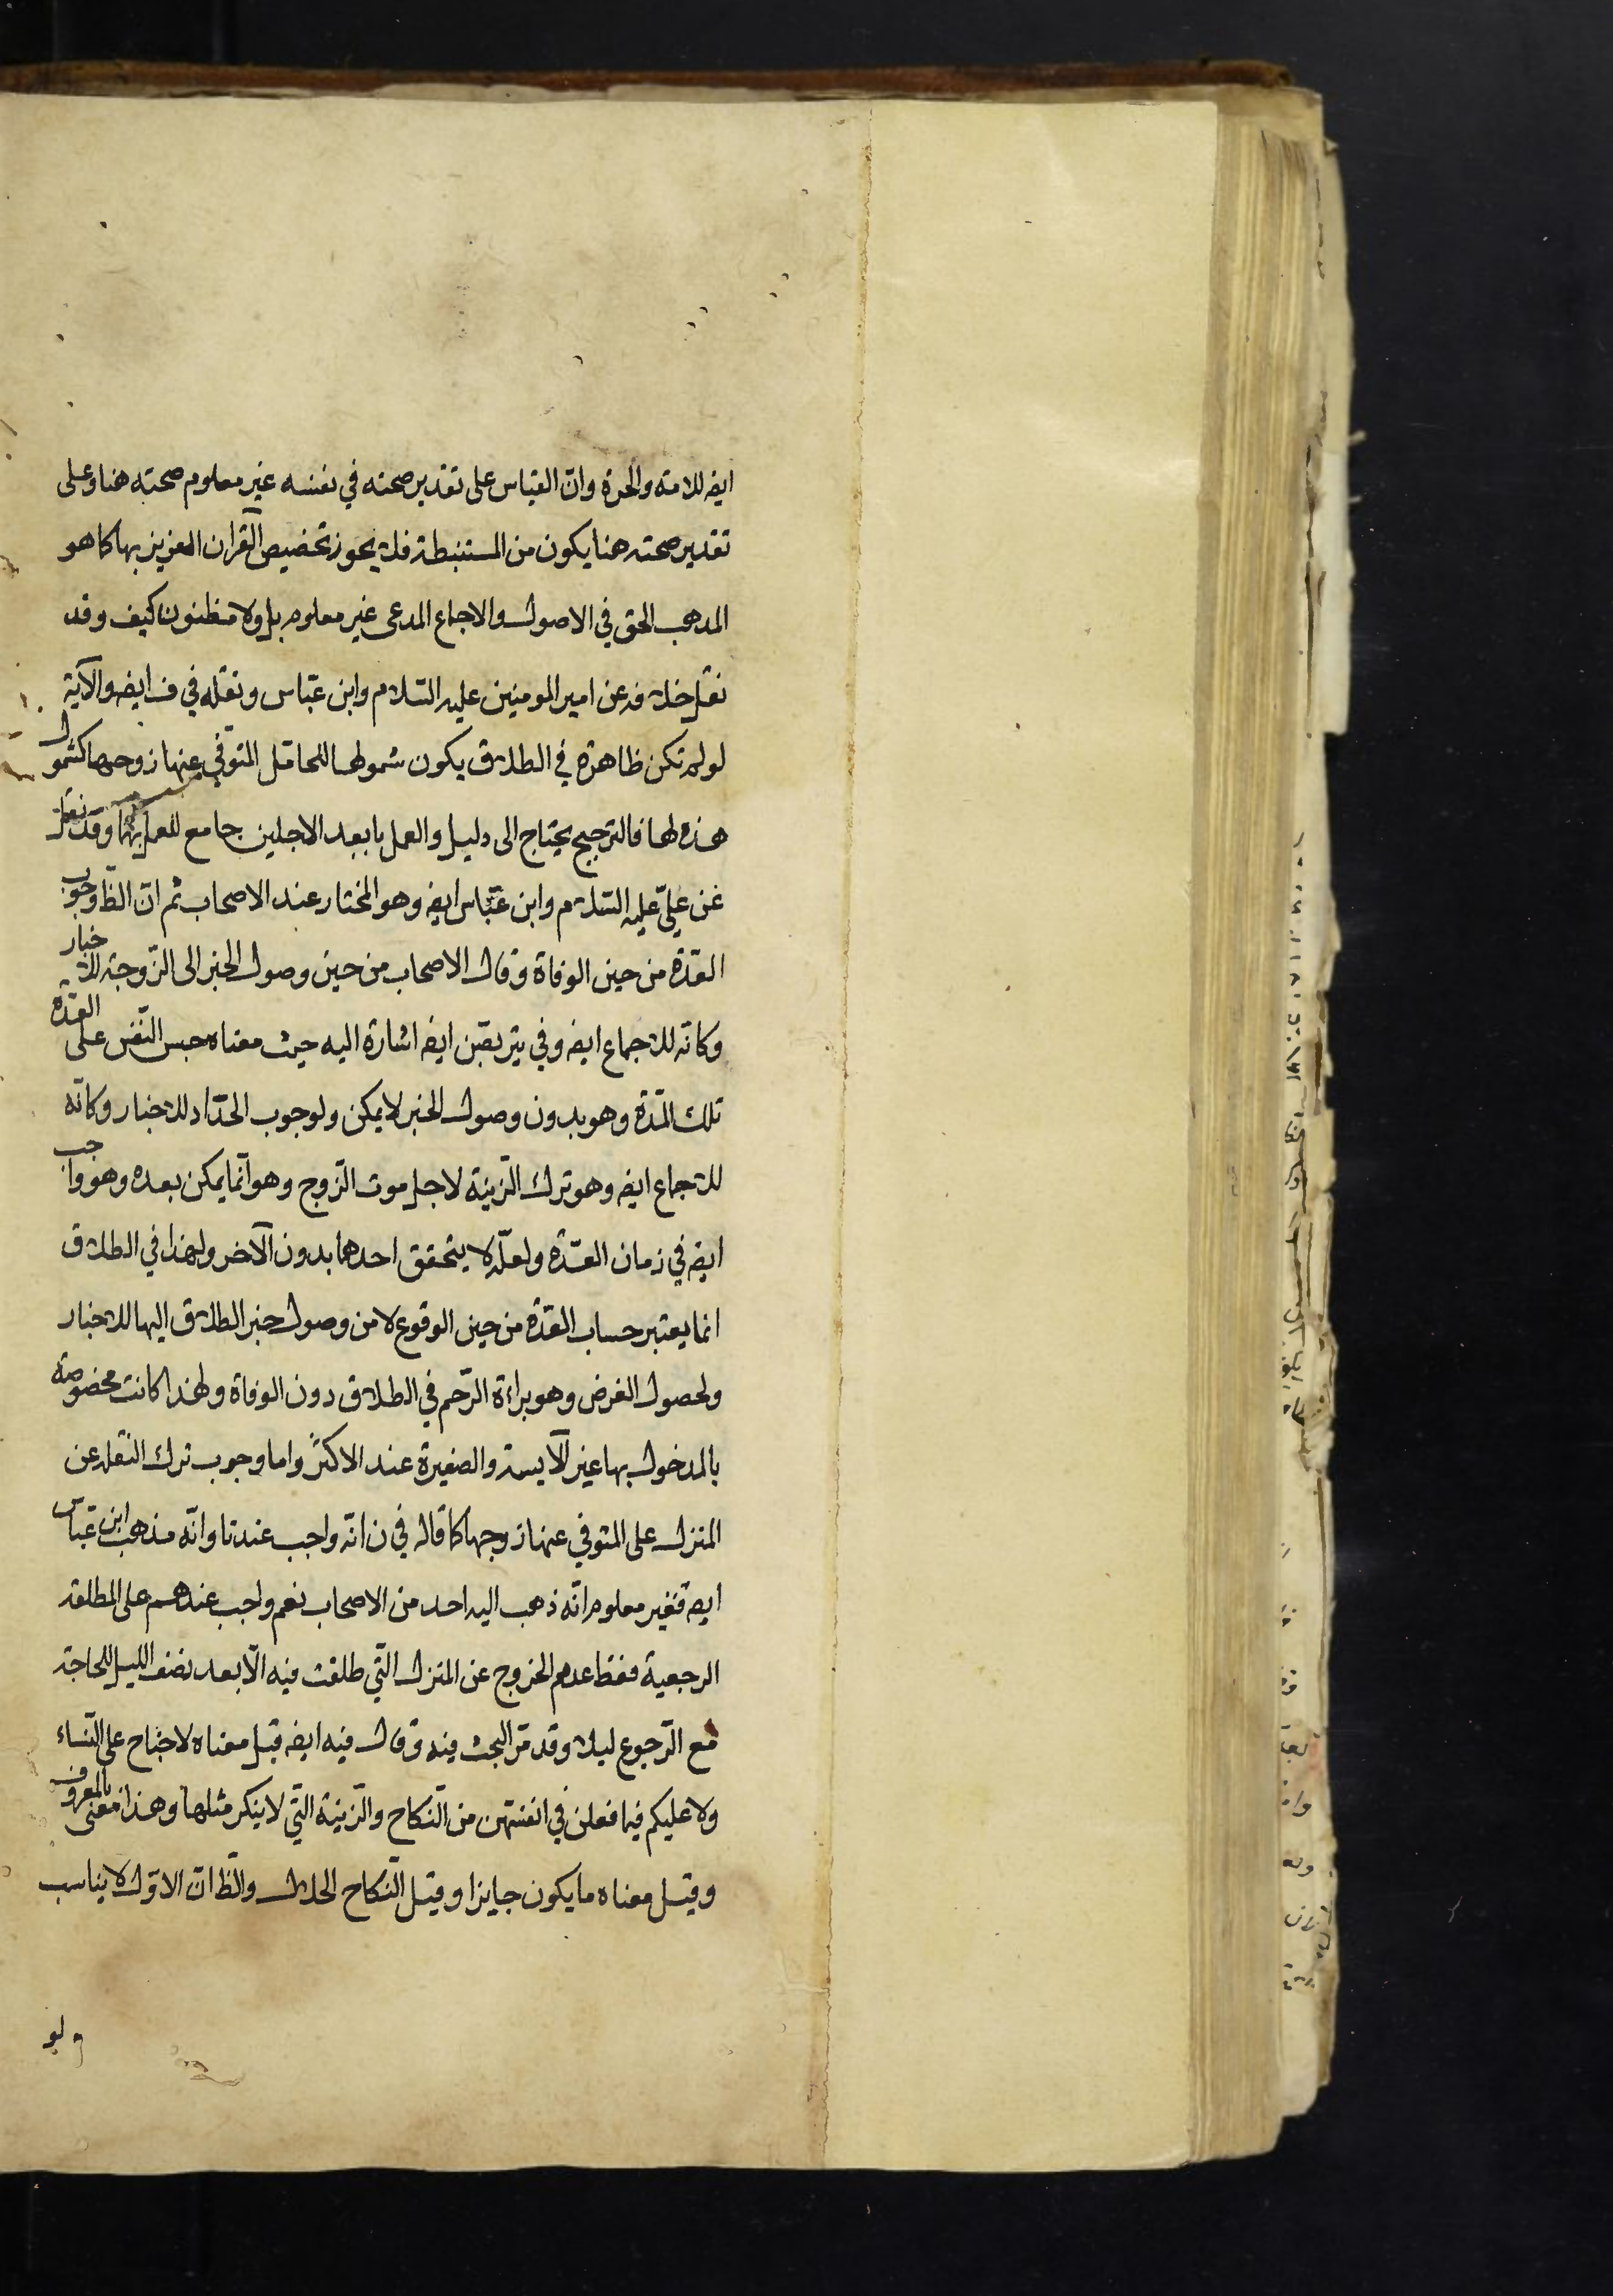 ايضا للامة والحرة وان القياس على تقدير صحته في نفسه غير معلوم صحته هنا وعلى
تقدير صحته هنا يكون من المستنبطة فلا يجوز تخصيص القران العزيز بها كما هو
المذهب الحق في الاصول والاجماع المدعى غير معلوم بل ولا مظنون كيف وقد
نقل خلافه عن امير المومنين عليه السّلام وابن عبّاس ونقله في ف ايضا والآية
لو لم تكن ظاهرة في الطلاق يكون شمولها للحامل المتوفي عنها زوجها كشمول
هذه لها فالترجيح يحتاج الى دليل والعمل بابعد الاجلين جامع للعمل بهما وقد نقل
عن عليّ عليه السّلام وابن عبّاس ايضا وهو المختار عند الاصحاب ثم انّ الظّ وجوب
العدّة من حين الوفاة وقال الاصحاب من حين وصول الخبر الى الزّوجة للاخبار
وكانّه للاجماع ايضا وفي يتربّصن ايضا اشارة اليه حيث معناه حبس النّفس على العدّة
تلك المدّة وهو بدون وصول الخبر لا يمكن ولوجوب الحدّاد للاخبار وكانّه
للاجماع ايضا وهو ترك الزّينة لاجل موت الزّوج وهو انّما يمكن بعده وهو واجب
ايضا في زمان العدّة ولعلّه لا يتحقق احدهما بدون الآخر ولهذا في الطلاق
انما يعتبر حساب العدّة من حين الوقوع لا من وصول خبر الطلاق اليها للاخبار
ولحصول الغرض وهو براءة الرّحم في الطلاق دون الوفاة ولهذا كانت مخصوصة
بالمدخول بها غير الآيسة والصغيرة عند الاكثر واما وجوب ترك النقل عن
المنزل على المتوفي عنها زوجها كما قاله في ن انّه واجب عندنا وانّه مذهب ابن عبّاس
ايضا فغير معلوم انّه ذهب اليه احد من الاصحاب نعم واجب عندهم على المطلقة
الرجعية فقط عدم الخروج عن المنزل الّتي طلقت فيه الّا بعد نصف الليل للحاجة
مع الرّجوع ليلا وقد مرّ البحث فيه وقال فيه ايضا قيل معناه لا جناح على النّساء
ولا عليكم فيما فعلن في انفسهن من النّكاح والزّينة الّتي لا ينكر مثلها وهذا معنى بالمعروف
وقيل معناه ما يكون جايزا وقيل النّكاح الحلال والظّ انّ الاوّل لا يناسب
ولو